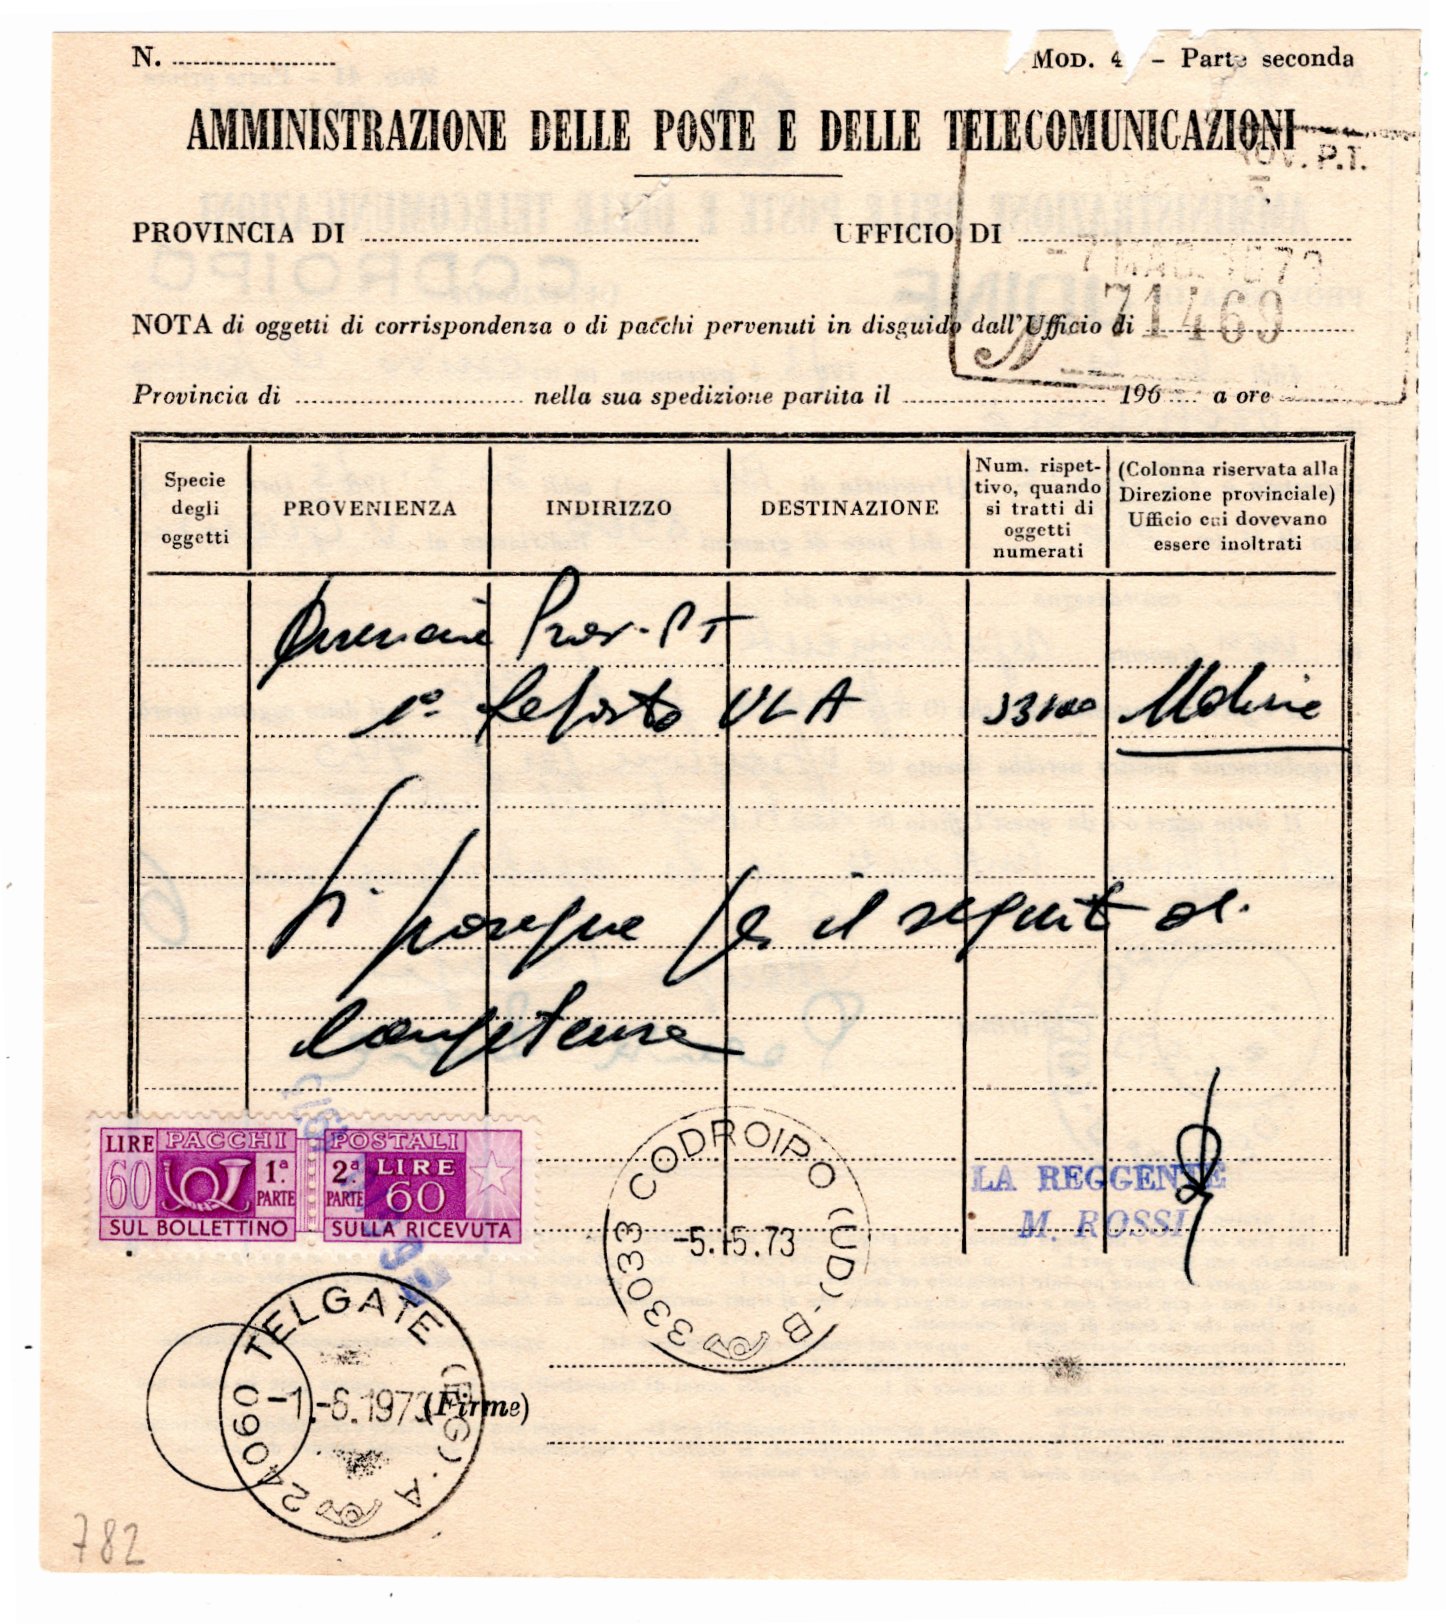 N. ....................
MOD. 4 – Parte seconda
AMMINISTRAZIONE DELLE POSTE E DELLE TELECOMUNICAZIONI
P.T.
PROVINCIA DI .................... UFFICIO DI ....................
-7 MAG. 1973
NOTA di oggetti di corrispondenza o di pacchi pervenuti in disguido dall'Ufficio di ....................
N 71469
Provincia di .................... nella sua spedizione partita il .................... 196.... a ore ....................
Specie degli oggetti
PROVENIENZA
INDIRIZZO
DESTINAZIONE
Num. rispettivo, quando si tratti di oggetti numerati
(Colonna riservata alla Direzione provinciale) Ufficio cui dovevano essere inoltrati
Prov. PT
1° Reparto ULA 33100 Udine
Si prega per il seguito di
competenza
LIRE 60 PACCHI 1ª PARTE SUL BOLLETTINO
POSTALI 2ª PARTE LIRE 60 SULLA RICEVUTA
33033 CODROIPO (UD) - B
-5.-5.73
LA REGGENTE
M. ROSSI
24060 TELGATE (BG) - A
-1.-6.1973
(Firme)
782